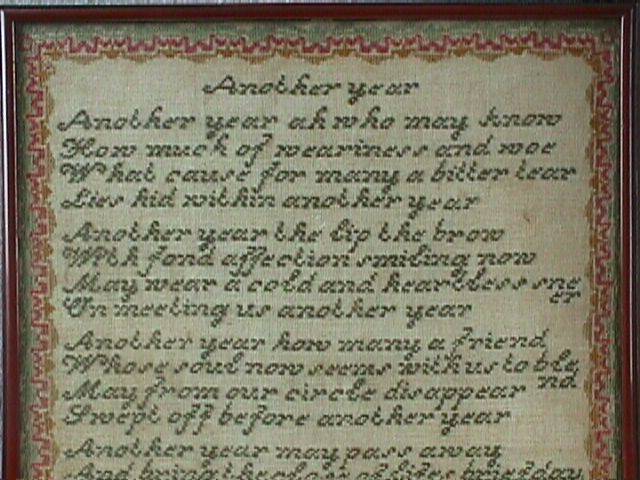 Another year
Another year ah who may know
How much of weariness and woe
What cause for many a bitter tear
Lies hid within another year
Another year the lip the brow
With fond affection smiling now
May wear a cold and heartless sne
er
On meeting us another year
Another year how many a friend
Whose soul now seems with us to ble
nd
May from our circle disappear
Swept off before another year
Another year may pass away
And bring the close of lifes brief day